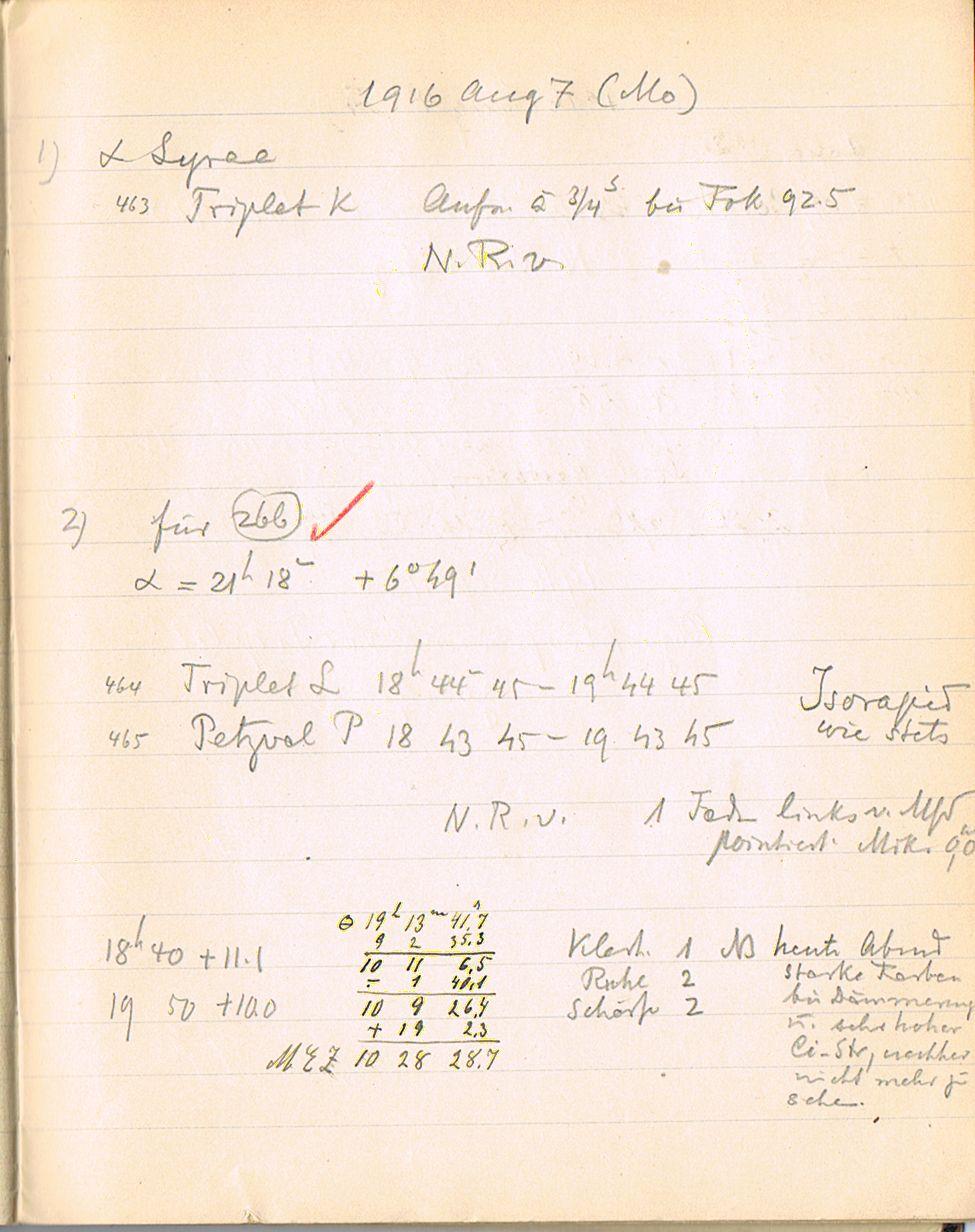 1916 Aug 7 (Mo)
1) α Lyrae
463 Triplet K Aufn. à 3/4 s bei Fok 92.5
N. R. v.
2) für 266 ✓
α = 21h 18m + 6° 49'
464 Triplet L 18h 44m 45 – 19h 44 45 Isorapid
465 Petzval P 18 43 45 – 19 43 45 wie stets
N. R. v. 1 Fadn links v. Mfd
pointiert. Mikr. 0,0
18h 40 + 11.1
19 50 + 10.0
θ 19h 13m 41,7s
9 2 35.3
10 11 6,5
– 1 40,1
10 9 26,4
+ 19 2.3
MEZ 10 28 28.7
Klarh. 1
Ruhe 2
Schärfe 2
NB heute Abend
starke Farben
bei Dämmerung
u. sehr hoher
Ci-Str, nachher
nicht mehr zu
sehen.